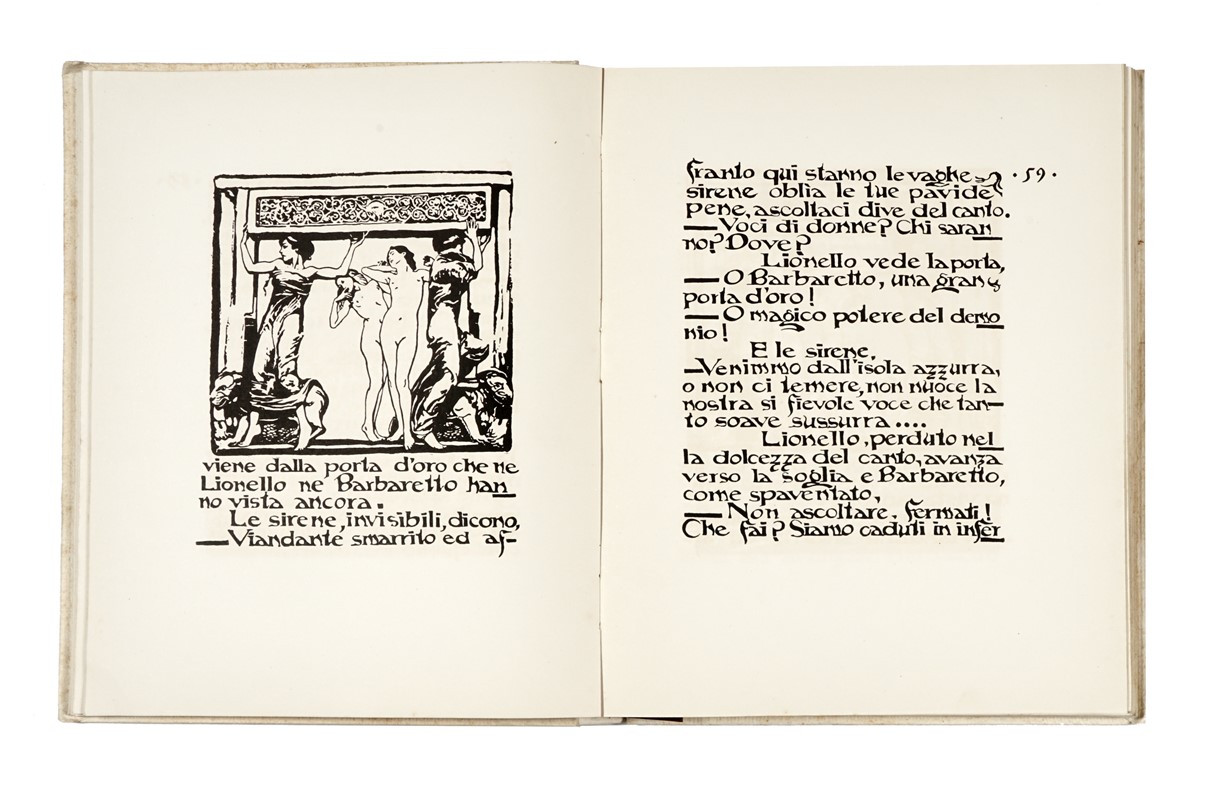 viene dalla porta d'oro che ne
Lionello ne Barbaretto han
no vista ancora.
Le sirene, invisibili, dicono,
—Viandante smarrito ed af-
franto qui stanno le vaghe
sirene oblìa le tue pavide
pene, ascoltaci dive del canto.
—Voci di donne? Chi saran
no? Dove?
Lionello vede la porta,
—O Barbaretto, una gran
porta d'oro!
—O magico potere del demo
nio!
E le sirene,
—Venimmo dall'isola azzurra,
o non ci temere, non nuoce la
nostra si fievole voce che tan—
to soave sussurra....
Lionello, perduto nel
la dolcezza del canto, avanza
verso la soglia e Barbaretto,
come spaventato,
—Non ascoltare, fermati!
Che fai? Siamo caduti in infer
·59·